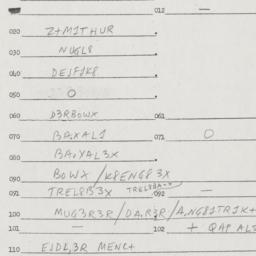 012 —
020 Z+M1THUR
030 NUGL8
040 DEJFJK8
050 O
060 D3RBOWX 061
070 BAXAL1 071 O
080 BA,YAL3X
090 BOWX / K8ENG8 3X
091 TREL8B3X TREL8BA+X 092 —
100 MUG3R3R / DA,R3R / A,NG81TR1K+
101 — 102 + QAP ALS
110 EJDL,3R MENC+